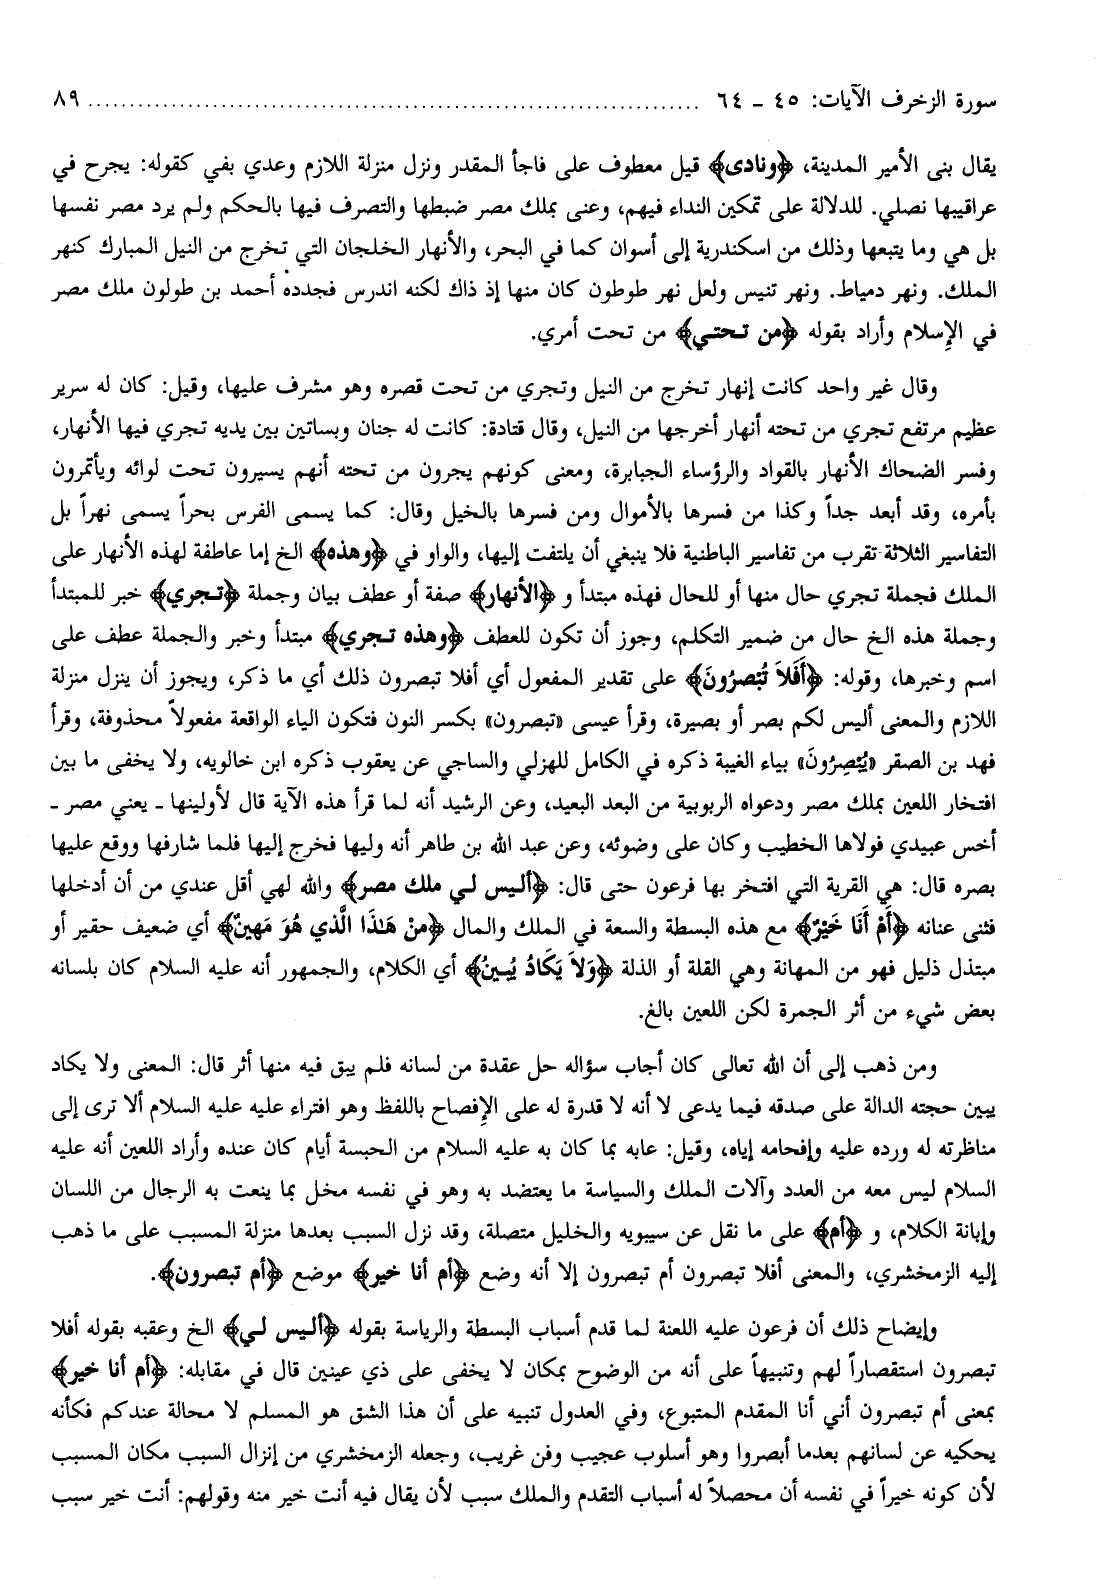 سورة الزخرف الآيات: ٤٥ ـ ٦٤ ............................................................ ٨٩
يقال بنى الأمير المدينة، ﴿ونادى﴾ قيل معطوف على فاجأ المقدر ونزل منزلة اللازم وعدي بفي كقوله: يجرح في
عراقيبها نصلي. للدلالة على تمكين النداء فيهم، وعنى بملك مصر ضبطها والتصرف فيها بالحكم ولم يرد مصر نفسها
بل هي وما يتبعها وذلك من اسكندرية إلى أسوان كما في البحر، والأنهار الخلجان التي تخرج من النيل المبارك كنهر
الملك. ونهر دمياط. ونهر تنيس ولعل نهر طوطون كان منها إذ ذاك لكنه اندرس فجدده أحمد بن طولون ملك مصر
في الإسلام وأراد بقوله ﴿من تحتي﴾ من تحت أمري.
وقال غير واحد كانت إنهار تخرج من النيل وتجري من تحت قصره وهو مشرف عليها، وقيل: كان له سرير
عظيم مرتفع تجري من تحته أنهار أخرجها من النيل، وقال قتادة: كانت له جنان وبساتين بين يديه تجري فيها الأنهار،
وفسر الضحاك الأنهار بالقواد والرؤساء الجبابرة، ومعنى كونهم يجرون من تحته أنهم يسيرون تحت لوائه ويأتمرون
بأمره، وقد أبعد جداً وكذا من فسرها بالأموال ومن فسرها بالخيل وقال: كما يسمى الفرس بحراً يسمى نهراً بل
التفاسير الثلاثة تقرب من تفاسير الباطنية فلا ينبغي أن يلتفت إليها، والواو في ﴿وهذه﴾ الخ إما عاطفة لهذه الأنهار على
الملك فجملة تجري حال منها أو للحال فهذه مبتدأ و ﴿الأنهار﴾ صفة أو عطف بيان وجملة ﴿تجري﴾ خبر للمبتدأ
وجملة هذه الخ حال من ضمير التكلم، وجوز أن تكون للعطف ﴿وهذه تجري﴾ مبتدأ وخبر والجملة عطف على
اسم وخبرها، وقوله: ﴿أَفَلاَ تُبْصِرُونَ﴾ على تقدير المفعول أي أفلا تبصرون ذلك أي ما ذكر، ويجوز أن ينزل منزلة
اللازم والمعنى أليس لكم بصر أو بصيرة، وقرأ عيسى «تبصرون» بكسر النون فتكون الياء الواقعة مفعولاً محذوفة، وقرأ
فهد بن الصقر «يُبْصِرُونَ» بياء الغيبة ذكره في الكامل للهزلي والساجي عن يعقوب ذكره ابن خالويه، ولا يخفى ما بين
افتخار اللعين بملك مصر ودعواه الربوبية من البعد البعيد، وعن الرشيد أنه لما قرأ هذه الآية قال لأولينها ـ يعني مصر ـ
أخس عبيدي فولاها الخطيب وكان على وضوئه، وعن عبد الله بن طاهر أنه وليها فخرج إليها فلما شارفها ووقع عليها
بصره قال: هي القرية التي افتخر بها فرعون حتى قال: ﴿أليس لي ملك مصر﴾ والله لهي أقل عندي من أن أدخلها
فثنى عنانه ﴿أَمْ أَنَا خَيْرٌ﴾ مع هذه البسطة والسعة في الملك والمال ﴿مِنْ هَـٰذَا الَّذي هُوَ مَهينٌ﴾ أي ضعيف حقير أو
مبتذل ذليل فهو من المهانة وهي القلة أو الذلة ﴿وَلاَ يَكَادُ يُبـينُ﴾ أي الكلام، والجمهور أنه عليه السلام كان بلسانه
بعض شيء من أثر الجمرة لكن اللعين بالغ.
ومن ذهب إلى أن الله تعالى كان أجاب سؤاله حل عقدة من لسانه فلم يبق فيه منها أثر قال: المعنى ولا يكاد
يبين حجته الدالة على صدقه فيما يدعى لا أنه لا قدرة له على الإفصاح باللفظ وهو افتراء عليه عليه السلام ألا ترى إلى
مناظرته له ورده عليه وإفحامه إياه، وقيل: عابه بما كان به عليه السلام من الحبسة أيام كان عنده وأراد اللعين أنه عليه
السلام ليس معه من العدد وآلات الملك والسياسة ما يعتضد به وهو في نفسه مخل بما ينعت به الرجال من اللسان
وإبانة الكلام، و ﴿أم﴾ على ما نقل عن سيبويه والخليل متصلة، وقد نزل السبب بعدها منزلة المسبب على ما ذهب
إليه الزمخشري، والمعنى أفلا تبصرون أم تبصرون إلا أنه وضع ﴿أم أنا خير﴾ موضع ﴿أم تبصرون﴾.
وإيضاح ذلك أن فرعون عليه اللعنة لما قدم أسباب البسطة والرياسة بقوله ﴿أليس لي﴾ الخ وعقبه بقوله أفلا
تبصرون استقصاراً لهم وتنبيهاً على أنه من الوضوح بمكان لا يخفى على ذي عينين قال في مقابله: ﴿أم أنا خير﴾
بمعنى أم تبصرون أني أنا المقدم المتبوع، وفي العدول تنبيه على أن هذا الشق هو المسلم لا محالة عندكم فكأنه
يحكيه عن لسانهم بعدما أبصروا وهو أسلوب عجيب وفن غريب، وجعله الزمخشري من إنزال السبب مكان المسبب
لأن كونه خيراً في نفسه أن محصلاً له أسباب التقدم والملك سبب لأن يقال فيه أنت خير منه وقولهم: أنت خير سبب